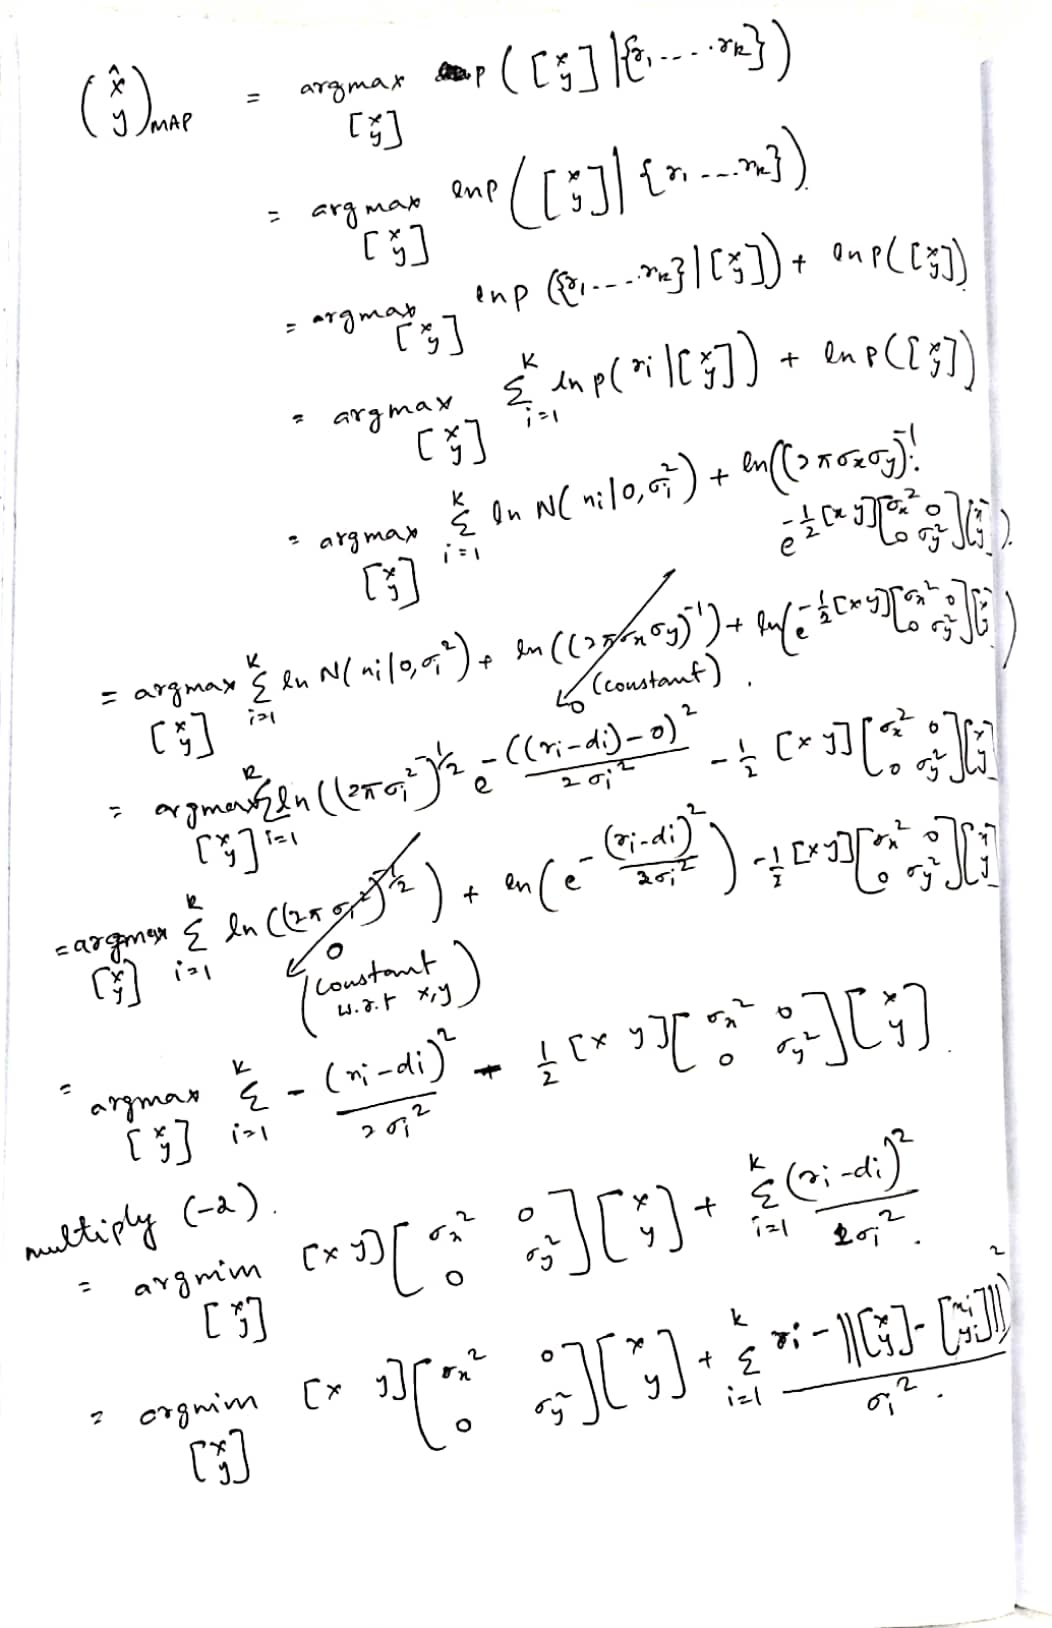 (x̂ y)MAP = argmax [x y] p([x y] | {r1, .... rk})
= argmax [x y] ln p([x y] | {r1 ..... rk})
= argmax [x y] ln p({r1 .... rk} | [x y]) + ln p([x y])
= argmax [x y] Σ i=1 K ln p(ri | [x y]) + ln p([x y])
= argmax [x y] Σ i=1 K ln N(ni | 0, σi²) + ln((2πσxσy)⁻¹ . e^(-1/2 [x y][σx² 0 0 σy²][x y]))
= argmax [x y] Σ i=1 K ln N(ni | 0, σi²) + ln((2πσxσy)⁻¹) + ln(e^(-1/2 [x y][σx² 0 0 σy²][x y]))
→ 0 (constant).
= argmax [x y] Σ i=1 K ln((2πσi²)^½ e^(-((ri-di)-0)² / 2σi²) - 1/2 [x y][σx² 0 0 σy²][x y]
= argmax [x y] Σ i=1 K ln((2πσi²)^-½) + ln(e^(-(ri-di)² / 2σi²)) - 1/2 [x y][σx² 0 0 σy²][x y]
→ 0 (constant w.r.t x,y)
= argmax [x y] Σ i=1 K -(ri-di)² / 2σi² - 1/2 [x y][σx² 0 0 σy²][x y].
multiply (-2).
= argmin [x y] [x y][σx² 0 0 σy²][x y] + Σ i=1 K (ri-di)² / 2σi².
= argmin [x y] [x y][σx² 0 0 σy²][x y] + Σ i=1 K ri - ||[x y] - [xi yi]||)² / σi².